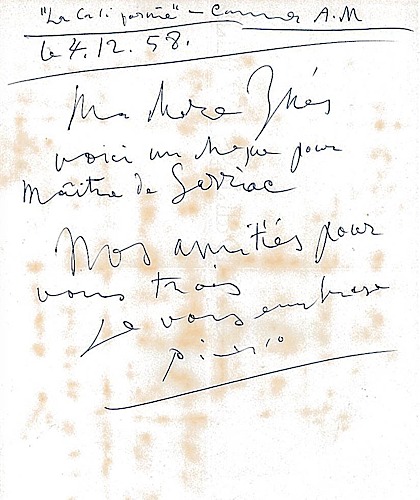 "La Californie" – Cannes A.M
le 4.12.58.
Ma chère Inés
voici un chèque pour
Maître de Sariac
Mes amitiés pour
vous trois
Je vous embrasse
Picasso